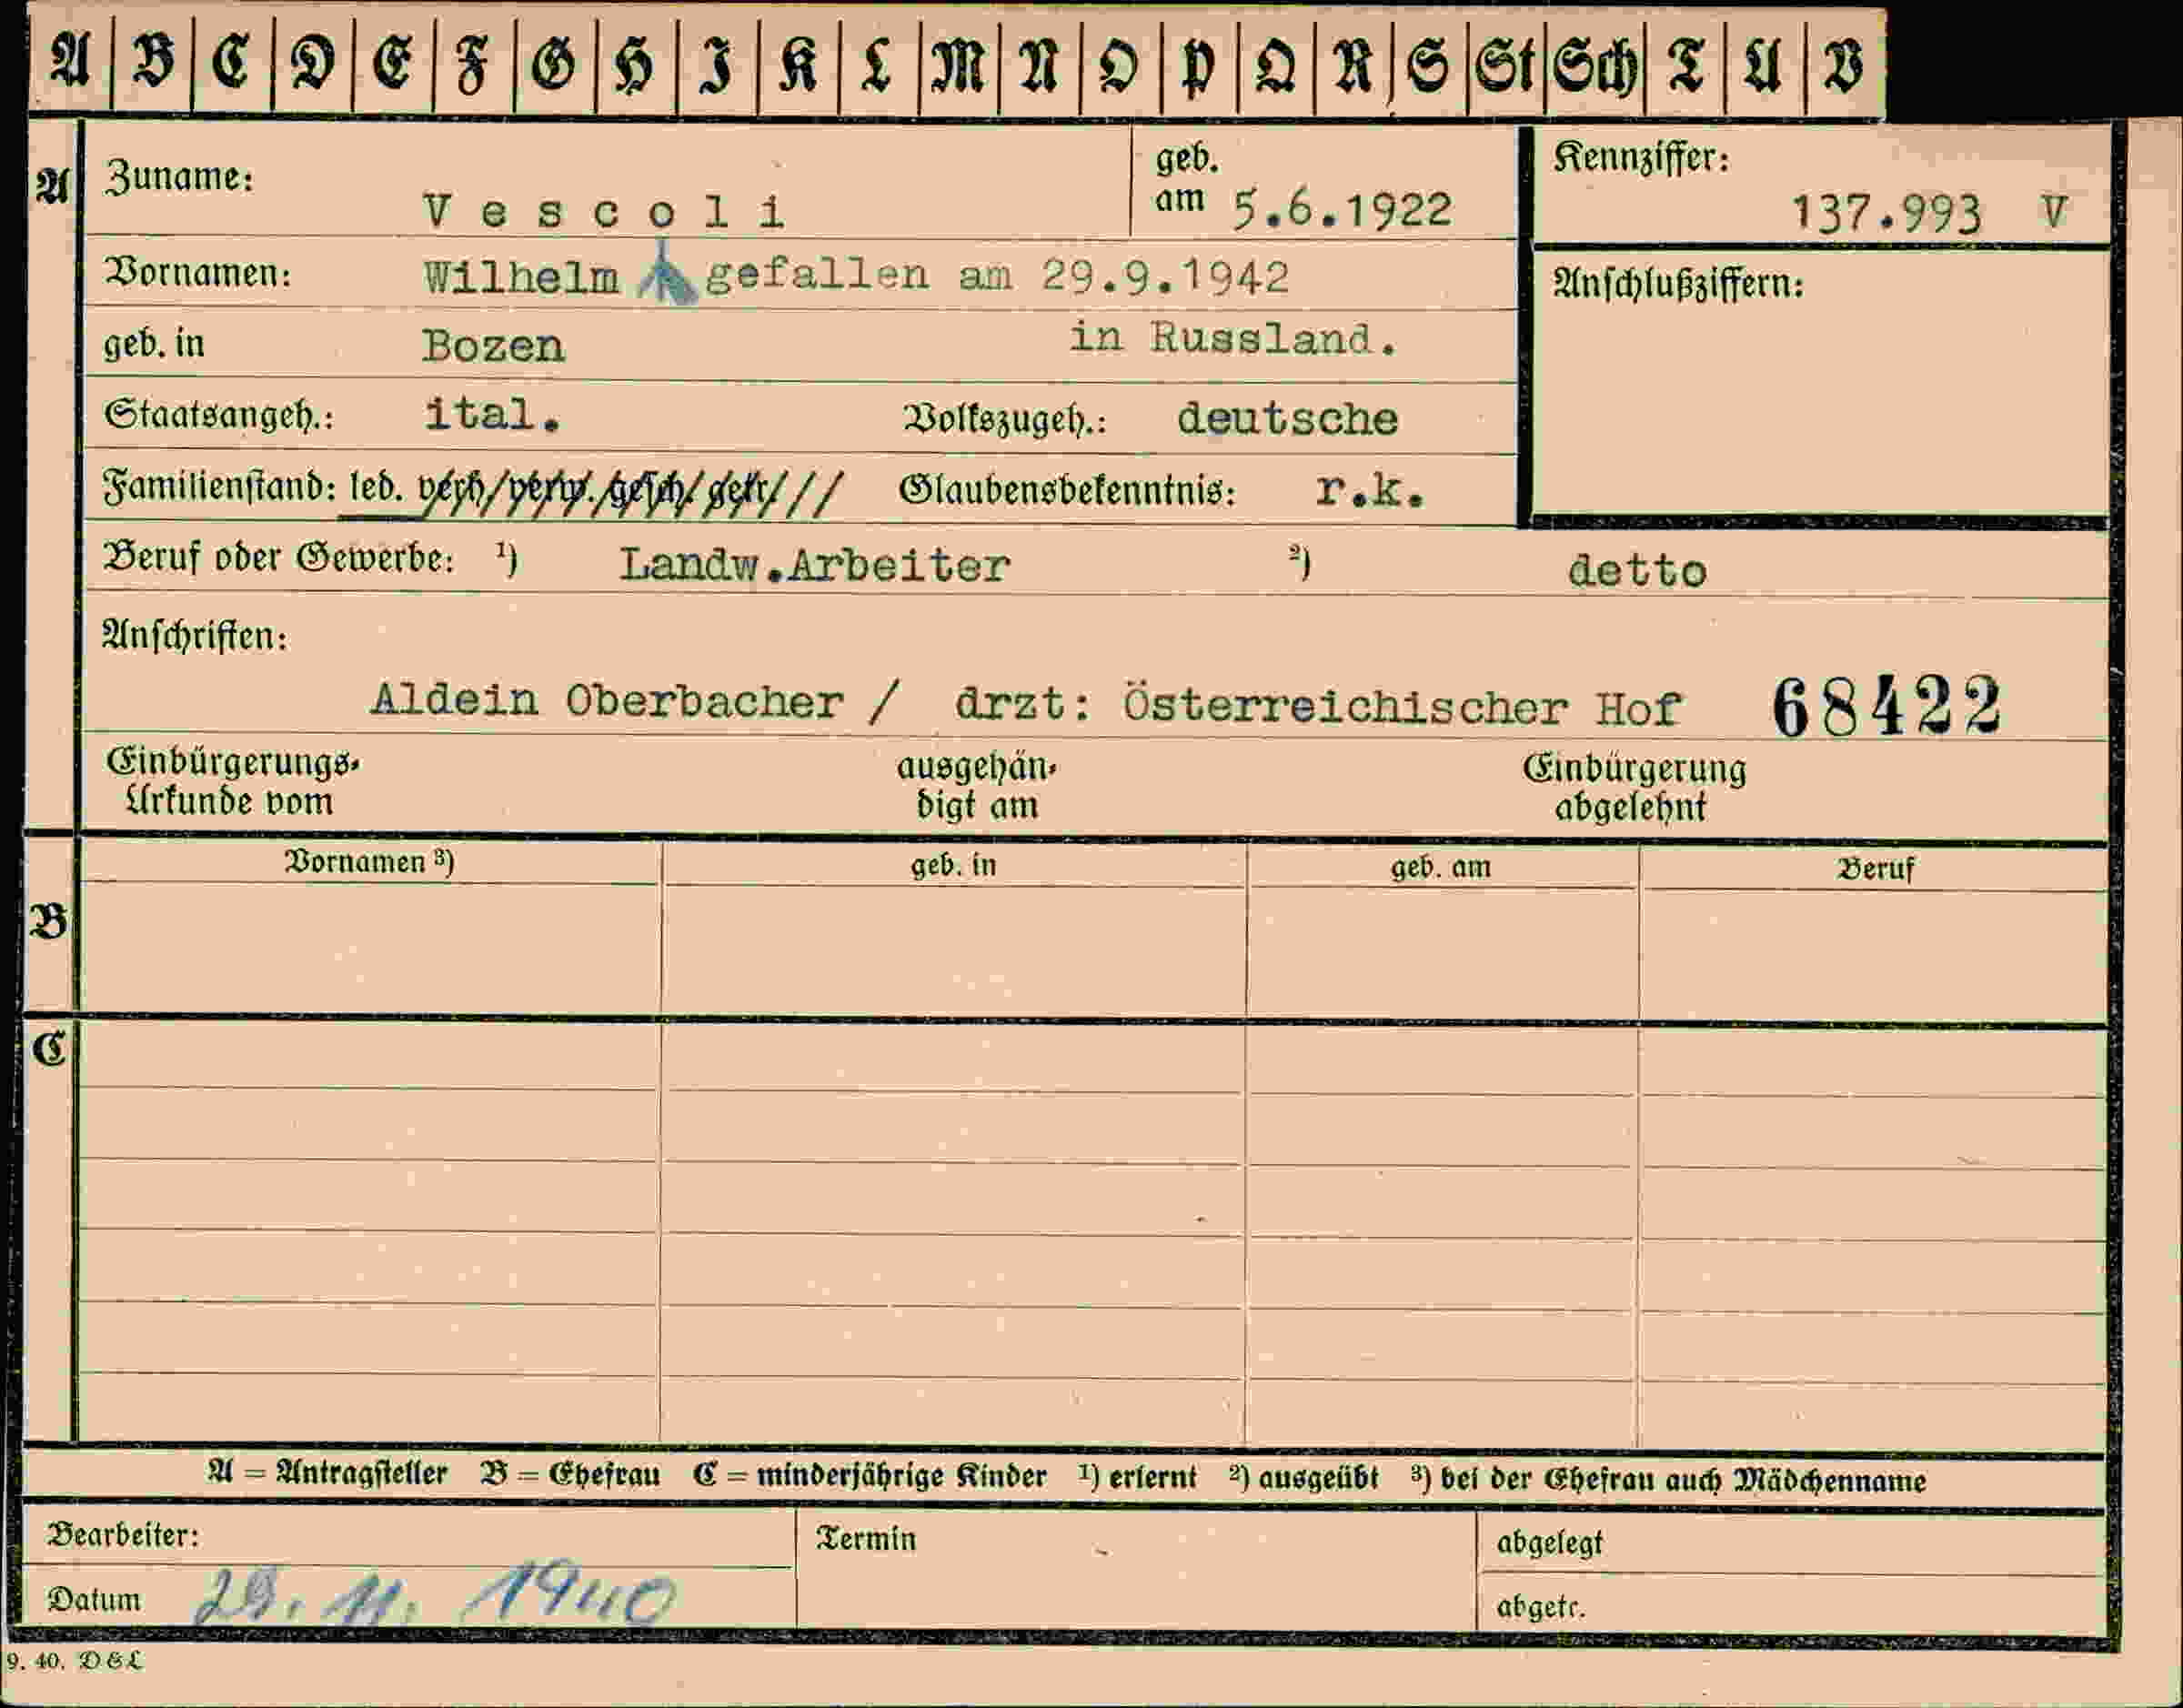 A B C D E F G H I K L M N O P Q R S St Sch T U V
A Zuname: Vescoli geb. am 5.6.1922 Kennziffer: 137.993 V
Vornamen: Wilhelm gefallen am 29.9.1942 Anschlußziffern:
geb. in Bozen in Russland.
Staatsangeh.: ital. Volkszugeh.: deutsche
Familienstand: led. verh. verw. gesch. getr. Glaubensbekenntnis: r.k.
Beruf oder Gewerbe: ¹) Landw.Arbeiter ²) detto
Anschriften:
Aldein Oberbacher / drzt: Österreichischer Hof 68422
Einbürgerungs- ausgehän- Einbürgerung
Urkunde vom digt am abgelehnt
Vornamen ³) geb. in geb. am Beruf
B
C
A = Antragsteller B = Ehefrau C = minderjährige Kinder ¹) erlernt ²) ausgeübt ³) bei der Ehefrau auch Mädchenname
Bearbeiter: Termin abgelegt
Datum 29. 11. 1940 abgetr.
9. 40. D&L